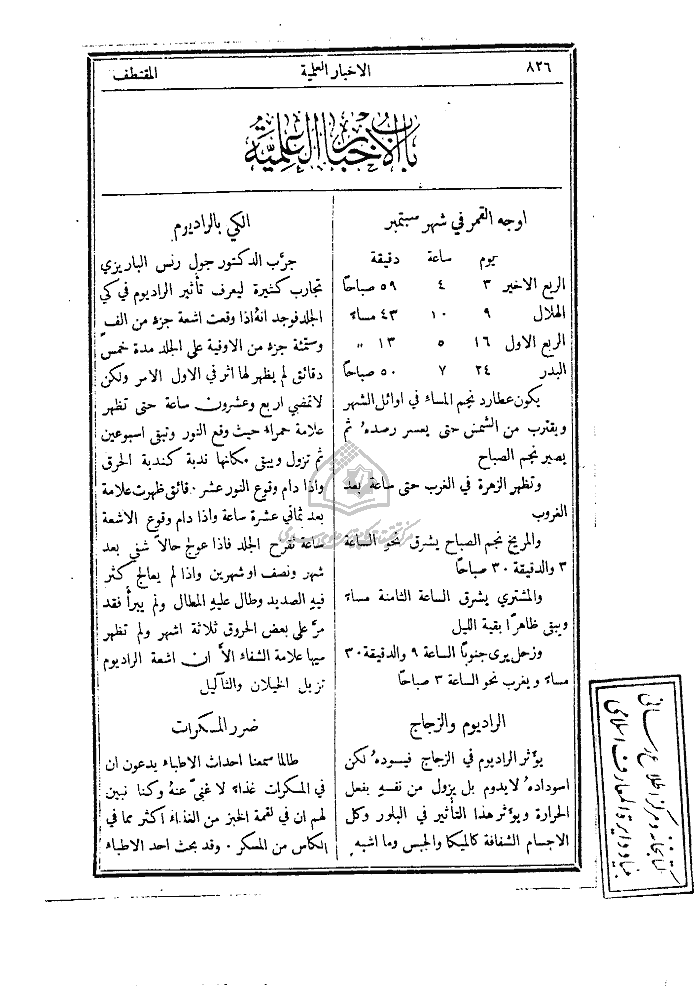 ٨٢٦
الاخبار العلمية
المقتطف
باب الاخبار العلمية
اوجه القمر في شهر سبتمبر
يوم ساعة دقيقة
الربع الاخير ٣ ٤ ٥٩ صباحًا
الهلال ٩ ١٠ ٤٣ مساءً
الربع الاول ١٦ ٥ ١٣ "
البدر ٢٤ ٧ ٥٠ صباحًا
يكون عطارد نجم المساء في اوائل الشهر
ويقترب من الشمس حتى يعسر رصدهُ ثم
يصير نجم الصباح
وتظهر الزهرة في الغرب حتى ساعة بعد
الغروب
والمريخ نجم الصباح يشرق نحو الساعة
٣ والدقيقة ٣٠ صباحًا
والمشتري يشرق الساعة الثامنة مساءً
ويبقى ظاهرًا بقية الليل
وزحل يرى جنوبًا الساعة ٩ والدقيقة ٣٠
مساءً ويغرب نحو الساعة ٣ صباحًا
الراديوم والزجاج
يؤثر الراديوم في الزجاج فيسودهُ لكن
اسوداده لا يدوم بل يزول من نفسهِ بفعل
الحرارة ويؤثر هذا التأثير في البلور وكل
الاجسام الشفافة كالميكا والجبس وما اشبه
الكي بالراديوم
جرَّب الدكتور جول رنس الباريزي
تجارب كثيرة ليعرف تأثير الراديوم في كي
الجلد فوجد انهُ اذا وقعت اشعة جزء من الف
وستمئة جزء من الاوقية على الجلد مدة خمس
دقائق لم يظهر لها اثر في الاول الامر ولكن
لا تمضي اربع وعشرون ساعة حتى تظهر
علامة حمراء حيث وقع النور وتبقى اسبوعين
ثم تزول ويبقى مكانها ندبة كندبة الحرق
واذا دام وقوع النور عشر دقائق ظهرت علامة
بعد ثماني عشرة ساعة واذا دام وقوع الاشعة
ساعة تقرح الجلد فاذا عولج حالاً شفي بعد
شهر ونصف او شهرين واذا لم يعالج كثر
فيه الصديد وطال عليهِ المطال ولم يبرأ فقد
مرَّ على بعض الحروق ثلاثة اشهر ولم تظهر
فيها علامة الشفاء الاَّ ان اشعة الراديوم
تزيل الخيلان والثآليل
ضرر المسكرات
طالما سمعنا احداث الاطباء يدعون ان
في المسكرات غذاءً لا غنى عنهُ وكنا نبين
لهم ان في لقمة الخبز من الغذاء اكثر مما في
الكاس من المسكر . وقد بحث احد الاطباء
كتابخانه ومركز اطلاع رسانى
بنياد دايرة المعارف اسلامى